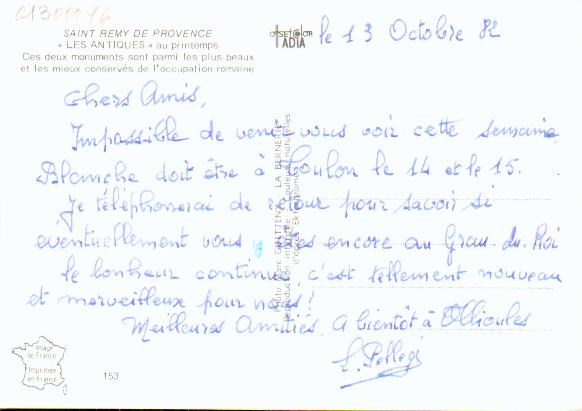 01300096
SAINT REMY DE PROVENCE
« LES ANTIQUES » au printemps
Ces deux monuments sont parmi les plus beaux
et les mieux conservés de l'occupation romaine
offset color
IADIA
le 13 Octobre 82
Chers Amis,
Impossible de venir vous voir cette semaine,
Blanche doit être à Toulon le 14 et le 15.
Je téléphonerai de retour pour savoir si
eventuellement vous y êtes encore au Grau. du. Roi
le bonheur continue, c'est tellement nouveau
et merveilleux pour nous!
Meilleures Amitiés. A bientôt à Ollioules
Photo Marc
LA BERNERIE
Reproduction interdite couleurs naturelles
d'après Ektachrome
Image
de France
Imprimée
en France
153